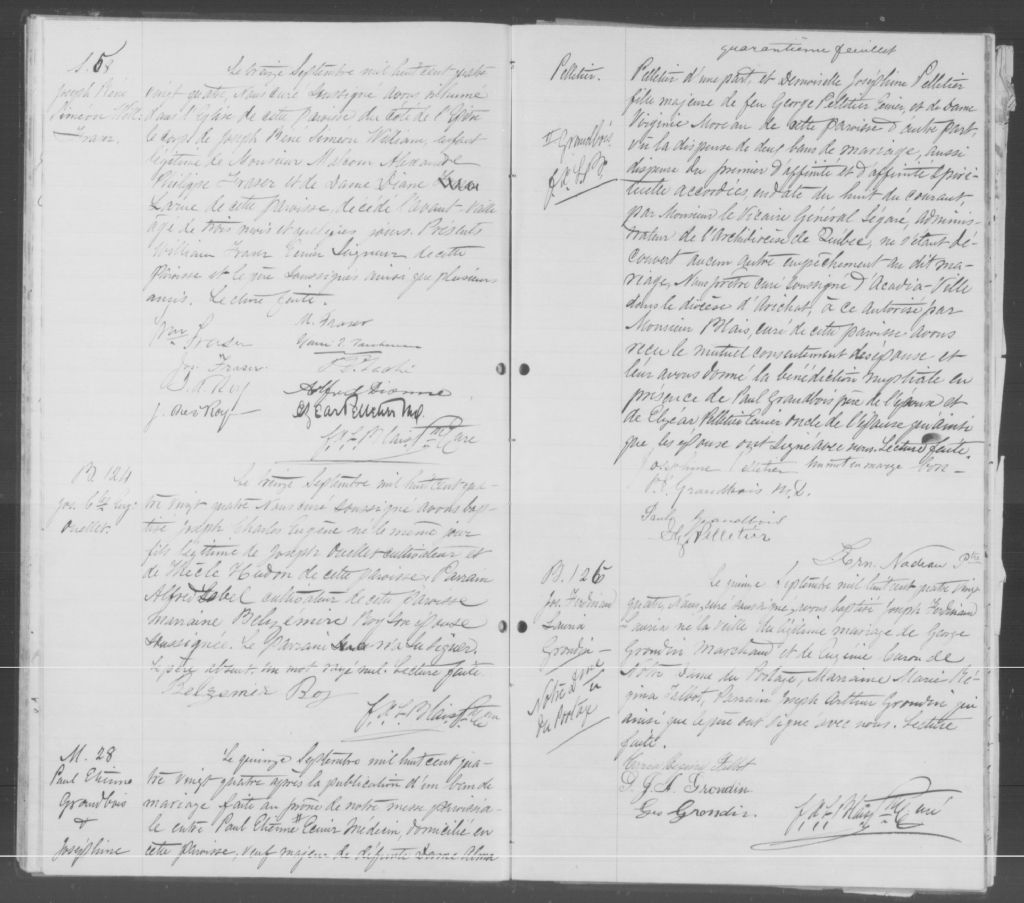 S. 58
Joseph René
Simeon Will.
Fraser.
Le treize Septembre mil huit cent quatre
vingt quatre, Nous curé soussigné avons inhumé
dans l'Eglise de cette paroisse du côté de l'Epitre
le corps de Joseph René Simeon William, enfant
légitime de Monsieur Malcom Alexandre
Philippe Fraser et de Dame Diane
Larue de cette paroisse, décédé l'avant-veille
âgé de trois mois et quelques jours. Presents
William Fraser Ecuier Seigneur de cette
paroisse et le père soussignés ainsi que plusieurs
amis. Lecture faite.
Wm Fraser
M. Fraser
Jos. Fraser
Alfred Dionne
F.X.L. Blais Ptre Curé
B. 124
Jos. Chs Eug.
Ouellet.
Le treize Septembre mil huit cent qua-
tre vingt quatre Nous curé soussigné avons bap-
tisé Joseph Charles Eugène né le même jour
fils légitime de Joseph Ouellet cultivateur et
de Thècle Hudon de cette paroisse. Parrain
Alfred Lebel cultivateur de cette paroisse
marraine Belzemère Roy son epouse
soussignée. Le Parrain n'a su signer.
Le père absent. Un mot rayé nul. Lecture faite.
Belzemer Roy
F.X.L. Blais Ptre Curé
M. 28
Paul Etienne
Grandbois
&
Joséphine
Le quinze Septembre mil huit cent qua-
tre vingt quatre après la publication d'un ban de
mariage faite au prône de notre messe paroissia-
le entre Paul Etienne # Ecuier Médecin, domicilié en
cette paroisse, veuf majeur de défunte Dame Alma
quarantième feuillet
Pelletier.
# Grandbois
Pelletier d'une part, et Demoiselle Joséphine Pelletier
fille majeure de feu George Pelletier Ecuier, et de Dame
Virginie Moreau de cette paroisse d'autre part,
vu la dispense de deux bans de mariage, aussi
dispense du premier d'affinité et d'affinité spiri-
tuelle accordées, en date du huit du courant,
par Monsieur le Vicaire Général Légaré, adminis-
trateur de l'Archidiocèse de Québec, ne s'étant dé-
couvert aucun autre empêchement au dit ma-
riage, Nous prêtre curé soussigné d'Acadia-Ville
dans le diocèse d'Arichat, à ce autorisé par
Monsieur Blais, curé de cette paroisse avons
reçu le mutuel consentement des épouse et
leur avons donné la bénédiction nuptiale en
presence de Paul Grandbois père de l'époux et
de Elzéar Pelletier Ecuier oncle de l'épouse qui ainsi
que les epouse ont signé avec nous. Lecture faite.
un mot en marge bon
Josephine Pelletier
P.E. Grandbois M.D.
Paul Grandbois
Elz Pelletier
Arn. Nadeau Ptre
B. 125
Jos. Ferdinand
Lauria
Grondin
Notre Dame
du Portage
Le quinze Septembre mil huit cent quatre vingt
quatre, Nous, curé soussigné, avons baptisé Joseph Ferdinand
Lauria né la veille du légitime mariage de George
Grondin Marchand et de Eugénie Caron de
Notre Dame du Portage, Marraine Marie Ré-
gina Talbot, Parrain Joseph Arthur Grondin qui
ainsi que le père ont signé avec nous. Lecture
faite.
Talbot
J. A. Grondin
Geo Grondin.
F.X.L. Blais Ptre Curé